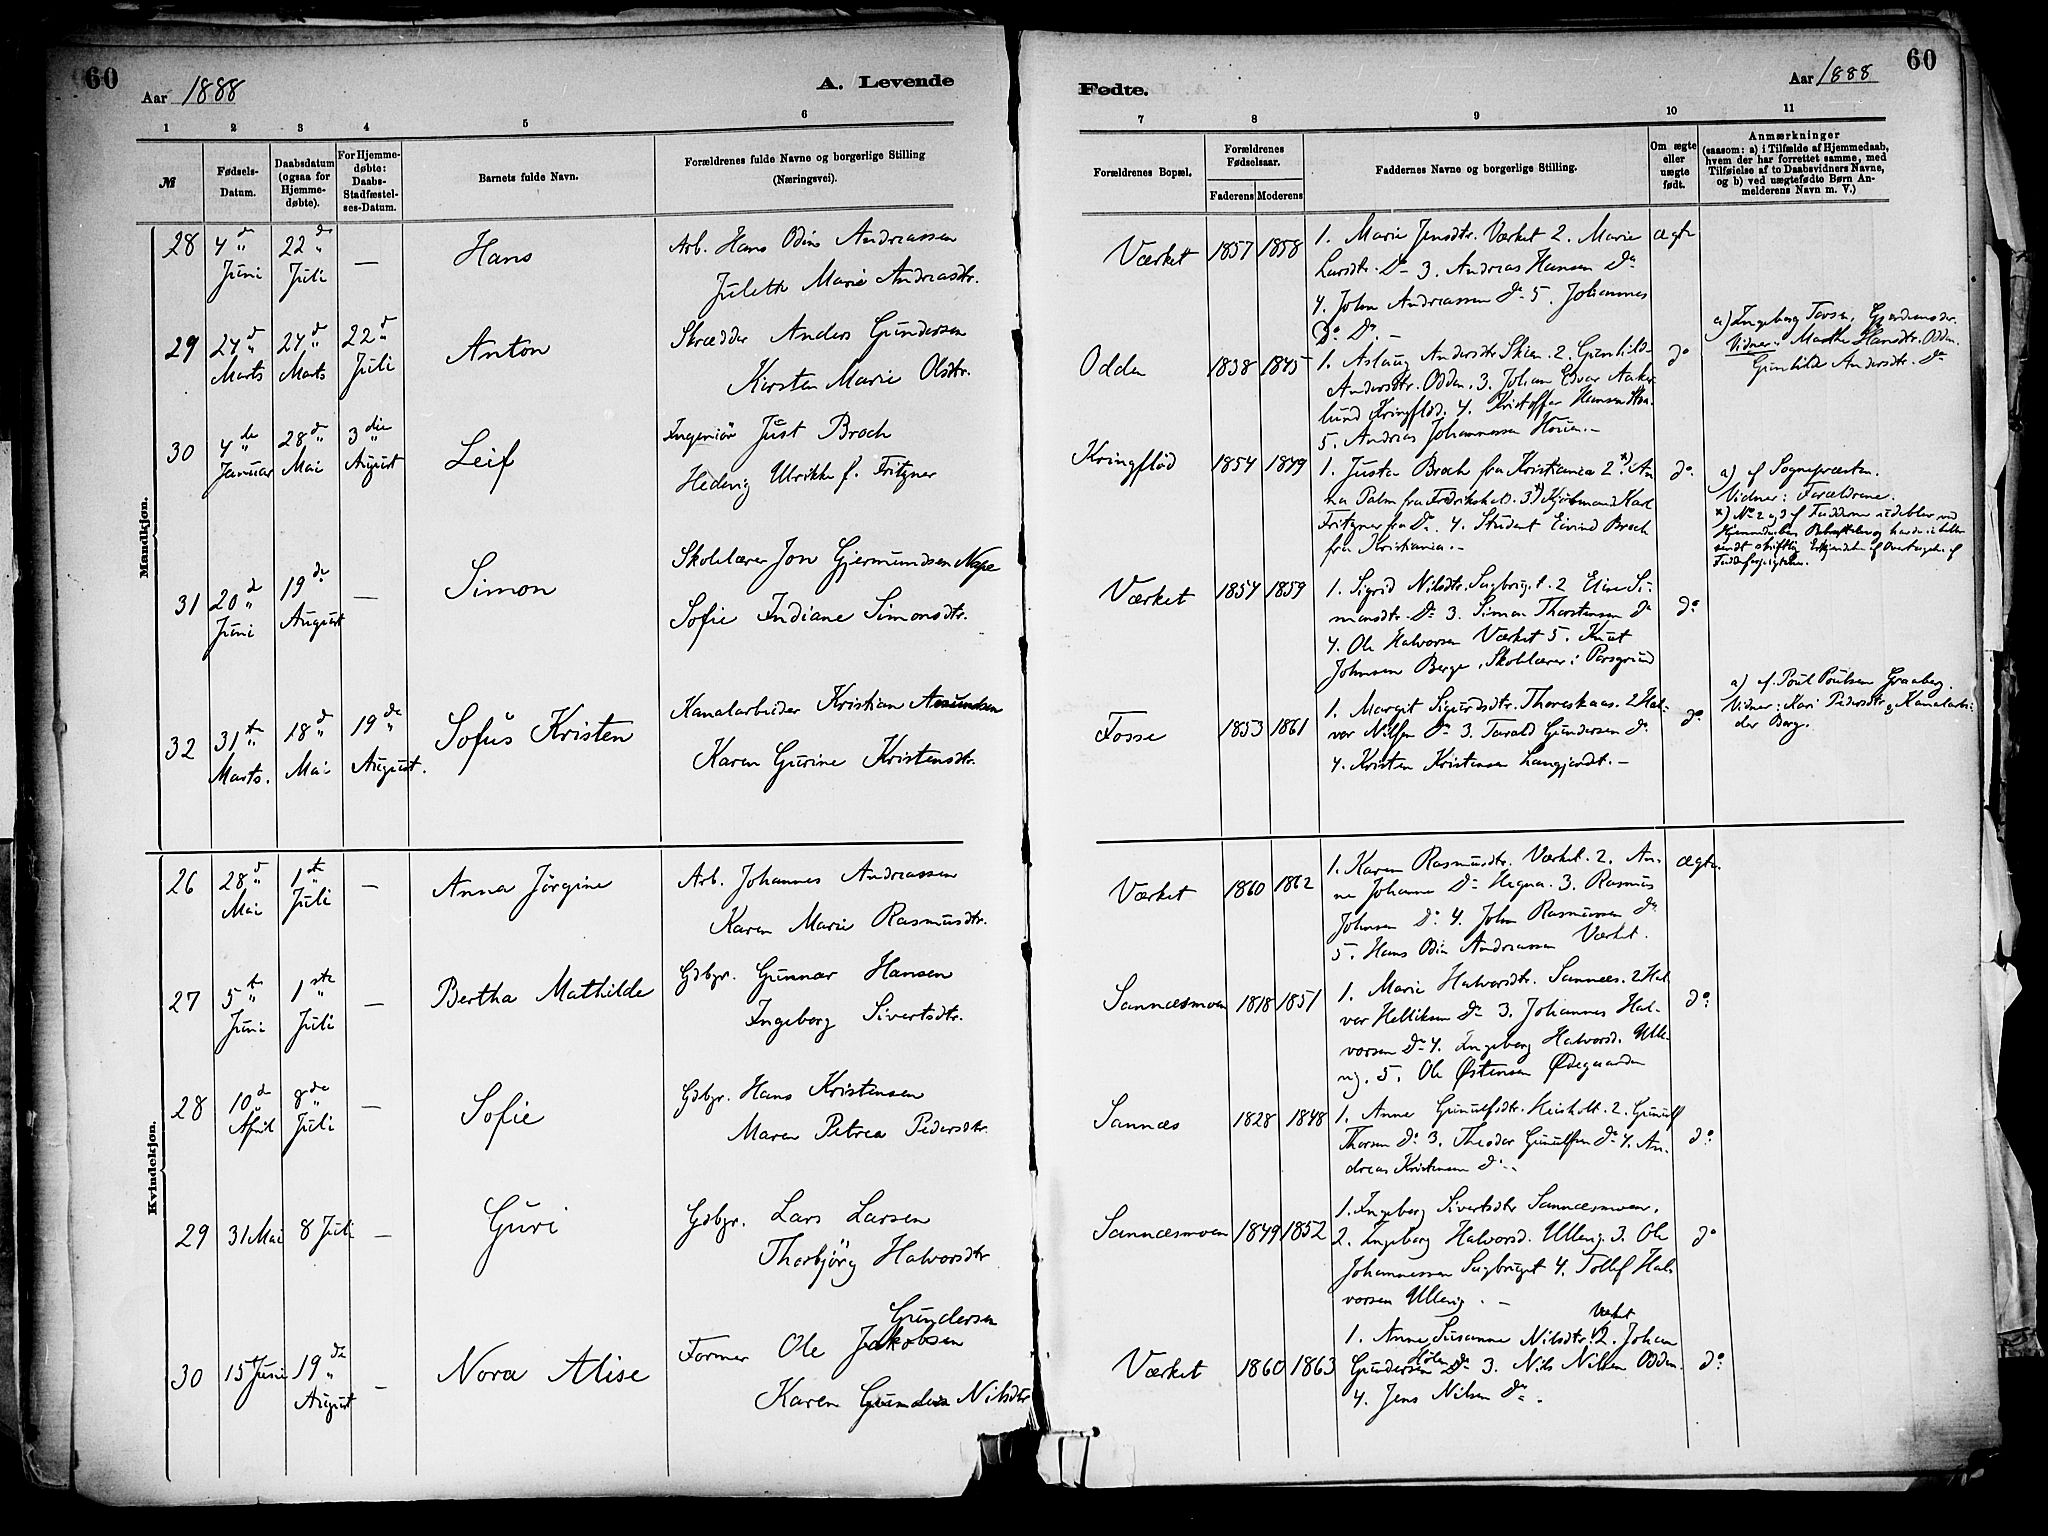 60
Aar 1888
A. Levende
1 2 3 4 5 6
№
Fødsels-Datum.
Daabsdatum (ogsaa for Hjemmedøbte).
For Hjemmedøbte: Daabs-Stadfæstelses-Datum.
Barnets fulde Navn.
Forældrenes fulde Navne og borgerlige Stilling
(Næringsvei).
Fødte.
Aar 1888
60
7 8 9 10 11
Forældrenes Bopæl.
Forældrenes Fødselsaar.
Faderens Moderens
Faddernes Navne og borgerlige Stilling.
Om ægte eller uægte født.
Anmærkninger
(saasom: a) i Tilfælde af Hjemmedaab,
hvem der har forrettet samme, med
Tilføielse af to Daabsvidners Navne,
og b) ved uægtefødte Børn An-
melderens Navn m. V.)
Mandkjøn.
28 4de Juni 22de Juli — Hans
Arb. Hans Odin Andreassen
Julette Marie Andreasdtr.
Værket 1857 1858
1. Marie Jensdtr. Værket 2. Marie
Larsdtr. Do 3. Andreas Hansen Do
4. John Andreassen Do 5. Johannes
Do Do. —
ægte
29 24de Marts 24de Marts 22de Juli Anton
Skrædder Anders Gundersen
Kirsten Marie Olsdtr.
Odden 1838 1845
1. Aslaug Andersdtr Skien. 2. Gunhild
Andersdtr. Odden. 3. Johan Edvar Aaker-
lund Kringflød. 4. Kristoffer Hansen
5. Andreas Johannessen
do
a) Ingeborg
Vidner: Marthe Hansdtr. Odden.
Gunhild Andersdtr. Do
30 4de Januar 28de Mai 3die August Leif
Ingeniør Just Broch
Hedevig Ulrikke f. Fritzner
Kringflød 1854 1849
1. Justa Broch fra Kristiania 2x) An-
na Palm fra Fredrikshald. 3x) Kjøbmand Karl
Fritzner fra Do. 4. Student Eivind Broch
fra Kristiania. —
do.
a) af Sognepræsten.
Vidner: Forældrene.
x) No 2 og 3 af Fadderne
31 20de Juni 19de August — Simon
Skolelærer Jon Gjermundsen Nape
Sofie Indiane Simonsdtr.
Værket 1854 1859
1. Sigrid Nilsdtr. Sagbrug.t. 2 Elise Si-
monsdtr. Do 3. Simon Thorstensen Do
4. Ole Halvorsen Værket 5. Knut
Johnsen Berge, Skolelærer i Porsgrund
do
32 31te Marts. 18de Mai 19de August. Sofus Kristen
Kanalarbeider Kristian Amundsen
Karen Gurine Kristensdtr.
Fosse 1853 1861
1. Margit Sigurdsdtr. Thoreskaas. 2 Hal-
vor Nilsen Do 3. Tarald Gundersen Do
4. Kristen Kristensen Langjordt. —
do
a) af Poul Poulsen Graaberg.
Vidner: Kari Pedersdtr og Kanalarbei-
der Borg.
Kvindekjøn.
26 28de Mai 1ste Juli — Anna Jörgine
Arb. Johannes Andreassen
Karen Marie Rasmusdtr.
Værket 1860 1862
1. Karen Rasmusdtr. Værket. 2. An-
ne Johanne Do Hegna. 3. Rasmus
Johnsen Do 4. John Rasmussen Do
5. Hans Odin Andreassen Værket.
ægte.
27 5te Juni 1ste Juli — Bertha Mathilde
Gdbgr. Gunnar Hansen
Ingeborg Sivertsdtr.
Sannæsmoen 1818 1851
1. Marie Halvorsdtr. Sannæs. 2 Hal-
vor Helliksen Do 3. Johannes Hal-
vorsen Do 4. Ingeborg Halvorsd. Ulle-
vig. 5. Ole Østensen Ødegaarden
do.
28 10de April 8de Juli — Sofie
Gdbgr. Hans Kristensen
Maren Petrea Pedersdtr.
Sannæs 1828 1848
1. Anne Gunulfsdtr. Keisholt. 2. Gunulf
Thorsen Do 3. Theodor Gunulfsen Do 4. An-
dreas Kristensen Do.
do.
29 31 Mai 8 Juli — Guri
Gdbgr. Lars Larsen
Thorbjörg Halvorsdtr
Sannæsmoen 1849 1852
1. Ingeborg Sivertsdtr Sannæsmoen.
2. Ingeborg Halvorsd. Ullevig 3. Ole
Johannessen Sagbruget 4. Tollef Hal-
vorsen Ullevig. —
do
30 15 Juni 19de August — Nora Alise
Gundersen
Former Ole Jakobsen
Karen Gundersen Nilsdtr
Værket 1860 1863
Værket
1. Anne Susanne Nilsdtr. 2. Johan
Gundersen Holen Do 3. Nils Nilsen Odden.
4. Jens Nilsen Do.
do.